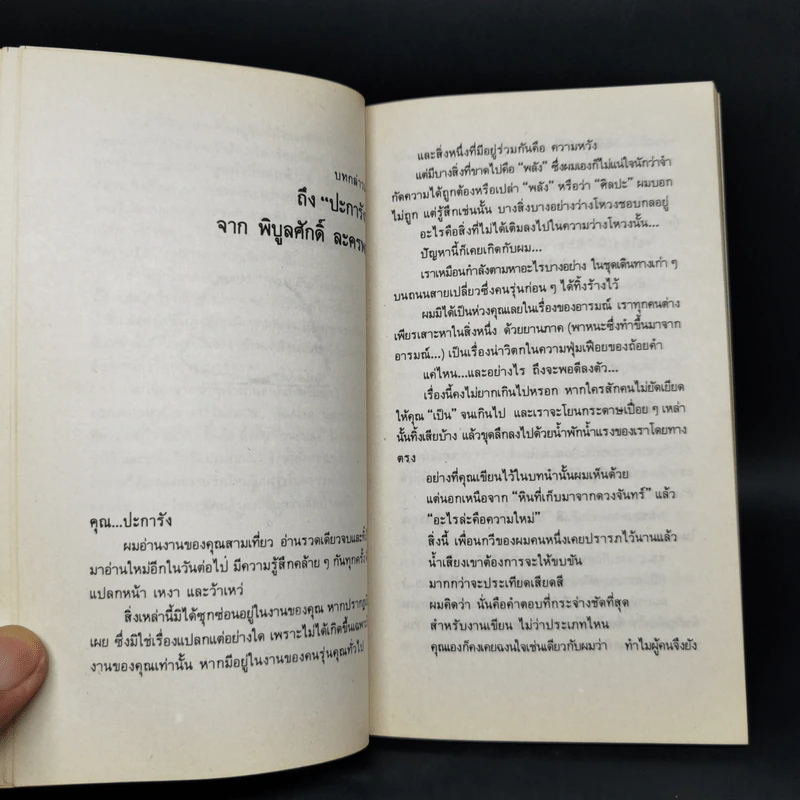 บทกล่าว
ถึง “ปะการัง
จาก พิบูลศักดิ์ ละครพ
คุณ...ปะการัง
ผมอ่านงานของคุณสามเที่ยว อ่านรวดเดียวจบและทิ้
มาอ่านใหม่อีกในวันต่อไป มีความรู้สึกคล้าย ๆ กันทุกครั้ง
แปลกหน้า เหงา และว้าเหว่
สิ่งเหล่านี้มิได้ซุกซ่อนอยู่ในงานของคุณ หากปรากฏ
เผย ซึ่งมิใช่เรื่องแปลกแต่อย่างใด เพราะไม่ได้เกิดขึ้นเฉพาะ
งานของคุณเท่านั้น หากมีอยู่ในงานของคนรุ่นคุณทั่วไป
และสิ่งหนึ่งที่มีอยู่ร่วมกันคือ ความหวัง
แต่มีบางสิ่งที่ขาดไปคือ “พลัง” ซึ่งผมเองก็ไม่แน่ใจนักว่าจำ
กัดความได้ถูกต้องหรือเปล่า “พลัง” หรือว่า “ศิลปะ” ผมบอก
ไม่ถูก แต่รู้สึกเช่นนั้น บางสิ่งบางอย่างว่างโหวงชอบกลอยู่
อะไรคือสิ่งที่ไม่ได้เติมลงไปในความว่างโหวงนั้น...
ปัญหานี้ก็เคยเกิดกับผม...
เราเหมือนกำลังตามหาอะไรบางอย่าง ในชุดเดินทางเก่า ๆ
บนถนนสายเปลี่ยวซึ่งคนรุ่นก่อน ๆ ได้ทิ้งร้างไว้
ผมมิได้เป็นห่วงคุณเลยในเรื่องของอารมณ์ เราทุกคนต่าง
เพียรเสาะหาในสิ่งหนึ่ง ด้วยยานภาค (พาหนะซึ่งทำขึ้นมาจาก
อารมณ์...) เป็นเรื่องน่าวิตกในความฟุ่มเฟือยของถ้อยคำ
แค่ไหน...และอย่างไร ถึงจะพอดีลงตัว...
เรื่องนี้คงไม่ยากเกินไปหรอก หากใครสักคนไม่ยัดเยียด
ให้คุณ “เป็น” จนเกินไป และเราจะโยนกระดาษเปื่อย ๆ เหล่า
นั้นทิ้งเสียบ้าง แล้วขุดลึกลงไปด้วยน้ำพักน้ำแรงของเราโดยทาง
ตรง
อย่างที่คุณเขียนไว้ในบทนำนั้นผมเห็นด้วย
แต่นอกเหนือจาก “หินที่เก็บมาจากดวงจันทร์” แล้ว
“อะไรล่ะคือความใหม่”
สิ่งนี้ เพื่อนกวีของผมคนหนึ่งเคยปรารภไว้นานแล้ว
น้ำเสียงเขาต้องการจะให้ขบขัน
มากกว่าจะประเทียดเสียดสี
ผมคิดว่า นั่นคือคำตอบที่กระจ่างชัดที่สุด
สำหรับงานเขียน ไม่ว่าประเภทไหน
คุณเองก็คงเคยฉงนใจเช่นเดียวกับผมว่า ทำไมผู้คนจึงยัง